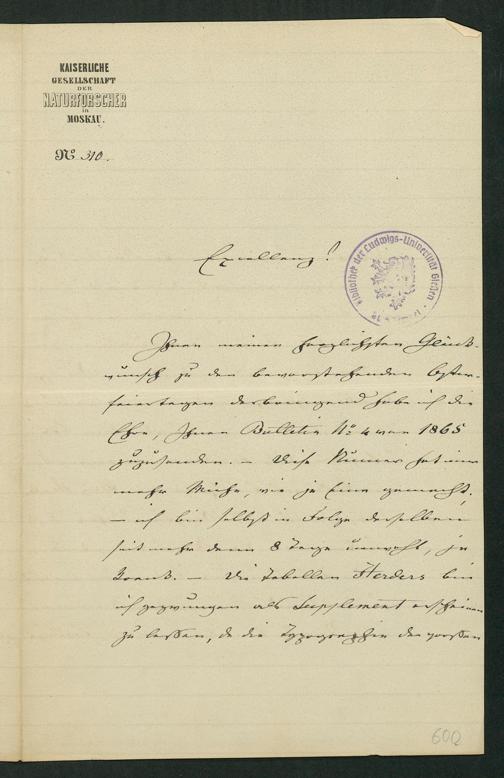 KAISERLICHE
GESELLSCHAFT
DER
NATURFORSCHER
in
MOSKAU.
No 310.
Excellenz!
Bibliothek der Ludwigs-Universität Gießen
Ihnen meinen herzlichsten Glück-
wunsch zu den bevorstehenden Oster-
feiertagen darbringend habe ich die
Ehre, Ihnen Bulletin No 4 von 1865
zuzusenden. – Diese Numer hat mir
mehr Mühe, wie je Eine gemacht,
– ich bin selbst in Folge derselben
seit mehr denn 8 Tage unwohl, ja
krank. – Die Tabellen Herders bin
ich gezwungen als Supplement erscheinen
zu lassen, da die Typographie den großen
600